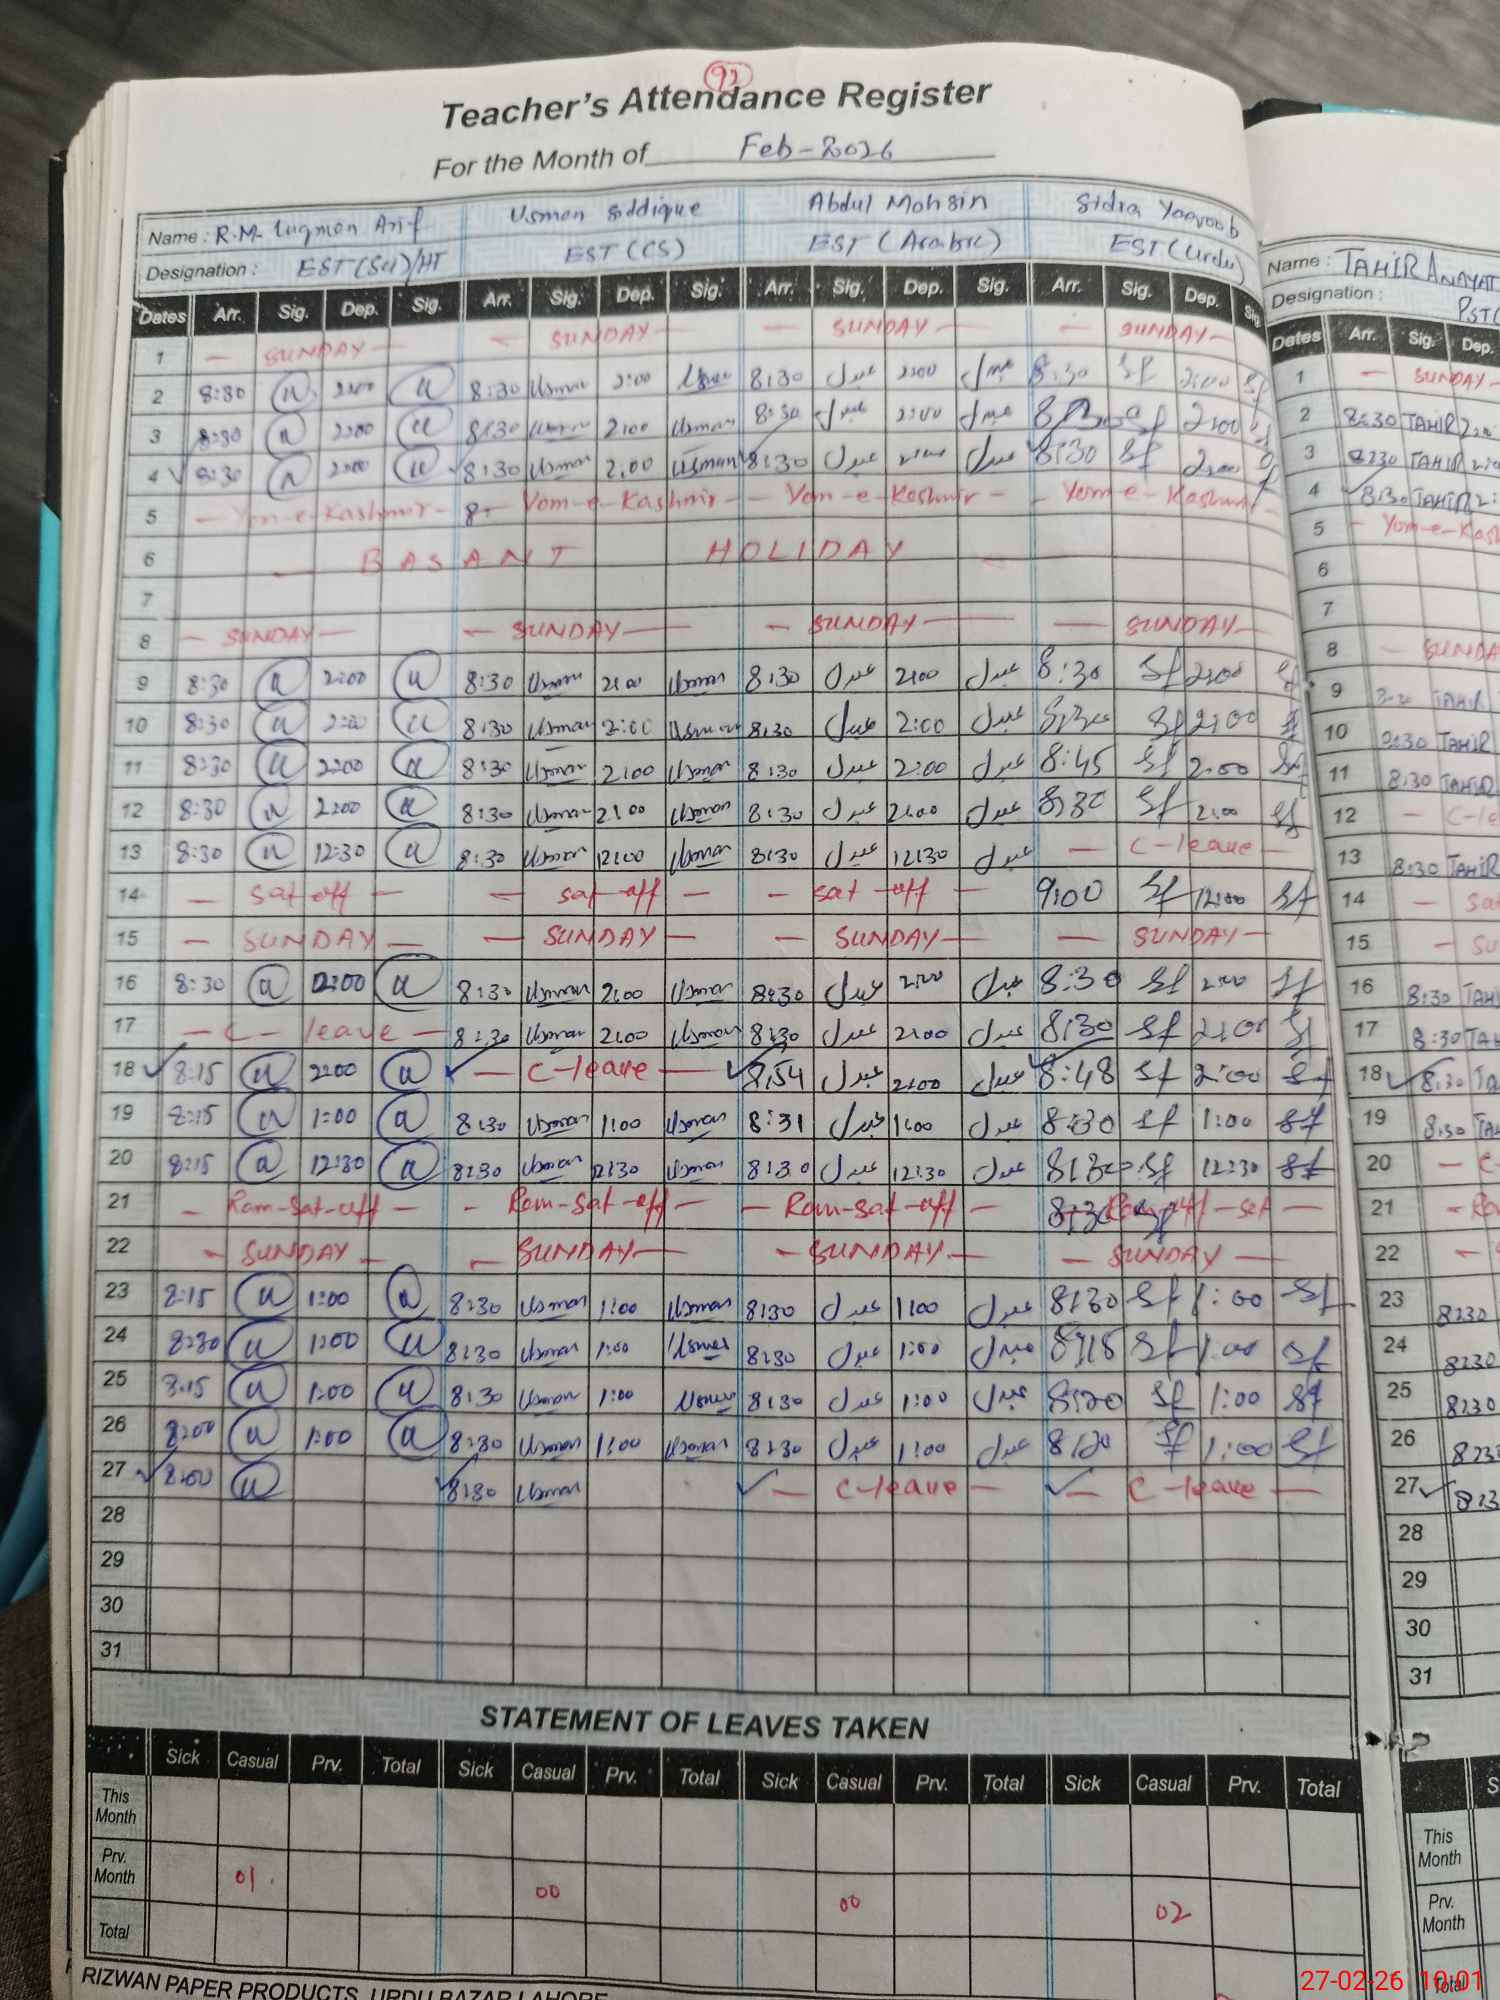 92
Teacher's Attendance Register
For the Month of Feb-2026
Name : R.M. Luqman Arif Usman Siddique Abdul Mohsin Sidra Yaqoob
Designation : EST(Sci)/HT EST (CS) EST (Arabic) EST (Urdu)
Dates Arr. Sig. Dep. Sig. Arr. Sig. Dep. Sig. Arr. Sig. Dep. Sig. Arr. Sig. Dep. Sig.
1 — SUNDAY — — SUNDAY — — SUNDAY — — SUNDAY —
2 8:30 2:00 8:30 Usman 2:00 Usman 8:30 عبدل 2:00 عبدل 8:30 Sf 2:00 Sf
3 8:30 2:00 8:30 Usman 2:00 Usman 8:30 عبدل 2:00 عبدل 8:30 Sf 2:00
4 ✓ 8:30 2:00 ✓ 8:30 Usman 2:00 Usman ✓ 8:30 عبدل 2:00 عبدل ✓ 8:30 Sf 2:00
5 — Yom-e-Kashmir - 8 - Yom-e-Kashmir - — Yom-e-Kashmir - — Yom-e-Kashmir -
6 — BASANT HOLIDAY —
7
8 — SUNDAY — — SUNDAY — — SUNDAY — — SUNDAY —
9 8:30 2:00 8:30 Usman 2:00 Usman 8:30 عبدل 2:00 عبدل 8:30 Sf 2:00 Sf
10 8:30 2:00 8:30 Usman 2:00 Usman 8:30 عبدل 2:00 عبدل 8:30 Sf 2:00 Sf
11 8:30 2:00 8:30 Usman 2:00 Usman 8:30 عبدل 2:00 عبدل 8:45 Sf 2:00 Sf
12 8:30 2:00 8:30 Usman 2:00 Usman 8:30 عبدل 2:00 عبدل 8:30 Sf 2:00 Sf
13 8:30 12:30 8:30 Usman 12:00 Usman 8:30 عبدل 12:30 عبدل — C-leave —
14 — Sat off — — sat off — — sat off — 9:00 Sf 12:00 Sf
15 — SUNDAY — — SUNDAY — — SUNDAY — — SUNDAY —
16 8:30 2:00 8:30 Usman 2:00 Usman 8:30 عبدل 2:00 عبدل 8:30 Sf 2:00 Sf
17 — C-leave — 8:30 Usman 2:00 Usman 8:30 عبدل 2:00 عبدل 8:30 Sf 2:00 Sf
18 ✓ 8:15 2:00 ✓ — C-leave — ✓ 8:54 عبدل 2:00 عبدل ✓ 8:48 Sf 2:00 Sf
19 8:15 1:00 8:30 Usman 1:00 Usman 8:31 عبدل 1:00 عبدل 8:30 Sf 1:00 Sf
20 8:15 12:30 8:30 Usman 12:30 Usman 8:30 عبدل 12:30 عبدل 8:30 Sf 12:30 Sf
21 — Ram-Sat-off — - Ram-Sat-off — — Ram-Sat-off — 8:30 Sf
22 — SUNDAY — — SUNDAY — — SUNDAY — — SUNDAY —
23 8:15 1:00 8:30 Usman 1:00 Usman 8:30 عبدل 1:00 عبدل 8:30 Sf 1:00 Sf
24 8:30 1:00 8:30 Usman 1:00 Usman 8:30 عبدل 1:00 عبدل Sf 1:00 Sf
25 8:15 1:00 8:30 Usman 1:00 Usman 8:30 عبدل 1:00 عبدل 8:20 Sf 1:00 Sf
26 8:00 1:00 8:30 Usman 1:00 Usman 8:30 عبدل 1:00 عبدل 8:20 Sf 1:00 Sf
27 ✓ 8:00 ✓ 8:30 Usman ✓ — C-leave — ✓ — C-leave —
28
29
30
31
STATEMENT OF LEAVES TAKEN
Sick Casual Prv. Total Sick Casual Prv. Total Sick Casual Prv. Total Sick Casual Prv. Total
This Month
Prv. Month 01 00 00 02
Total
RIZWAN PAPER PRODUCTS, URDU BAZAR LAHORE
Name : TAHIR ANAYAT
Designation :
Dates Arr. Sig. Dep.
1 — SUNDAY
2 8:30 TAHIR
3 8:30 TAHIR
4 ✓ 8:30 TAHIR
5 - Yom-e-Kash
6
7
8 - SUNDA
9 TAHIR
10 8:30 TAHIR
11 8:30 TAHIR
12 — C-le
13 8:30 TAHIR
14 — Sa
15 — SU
16 8:30 TAHI
17 8:30 TA
18 ✓ 8:30 TA
19 8:30 TAH
20 — C
21 — Ra
22
23 8:30
24 8:30
25 8:30
26 8:3
27 ✓ 8:3
28
29
30
31
S
This Month
Prv. Month
Total
27-02-26 10:01